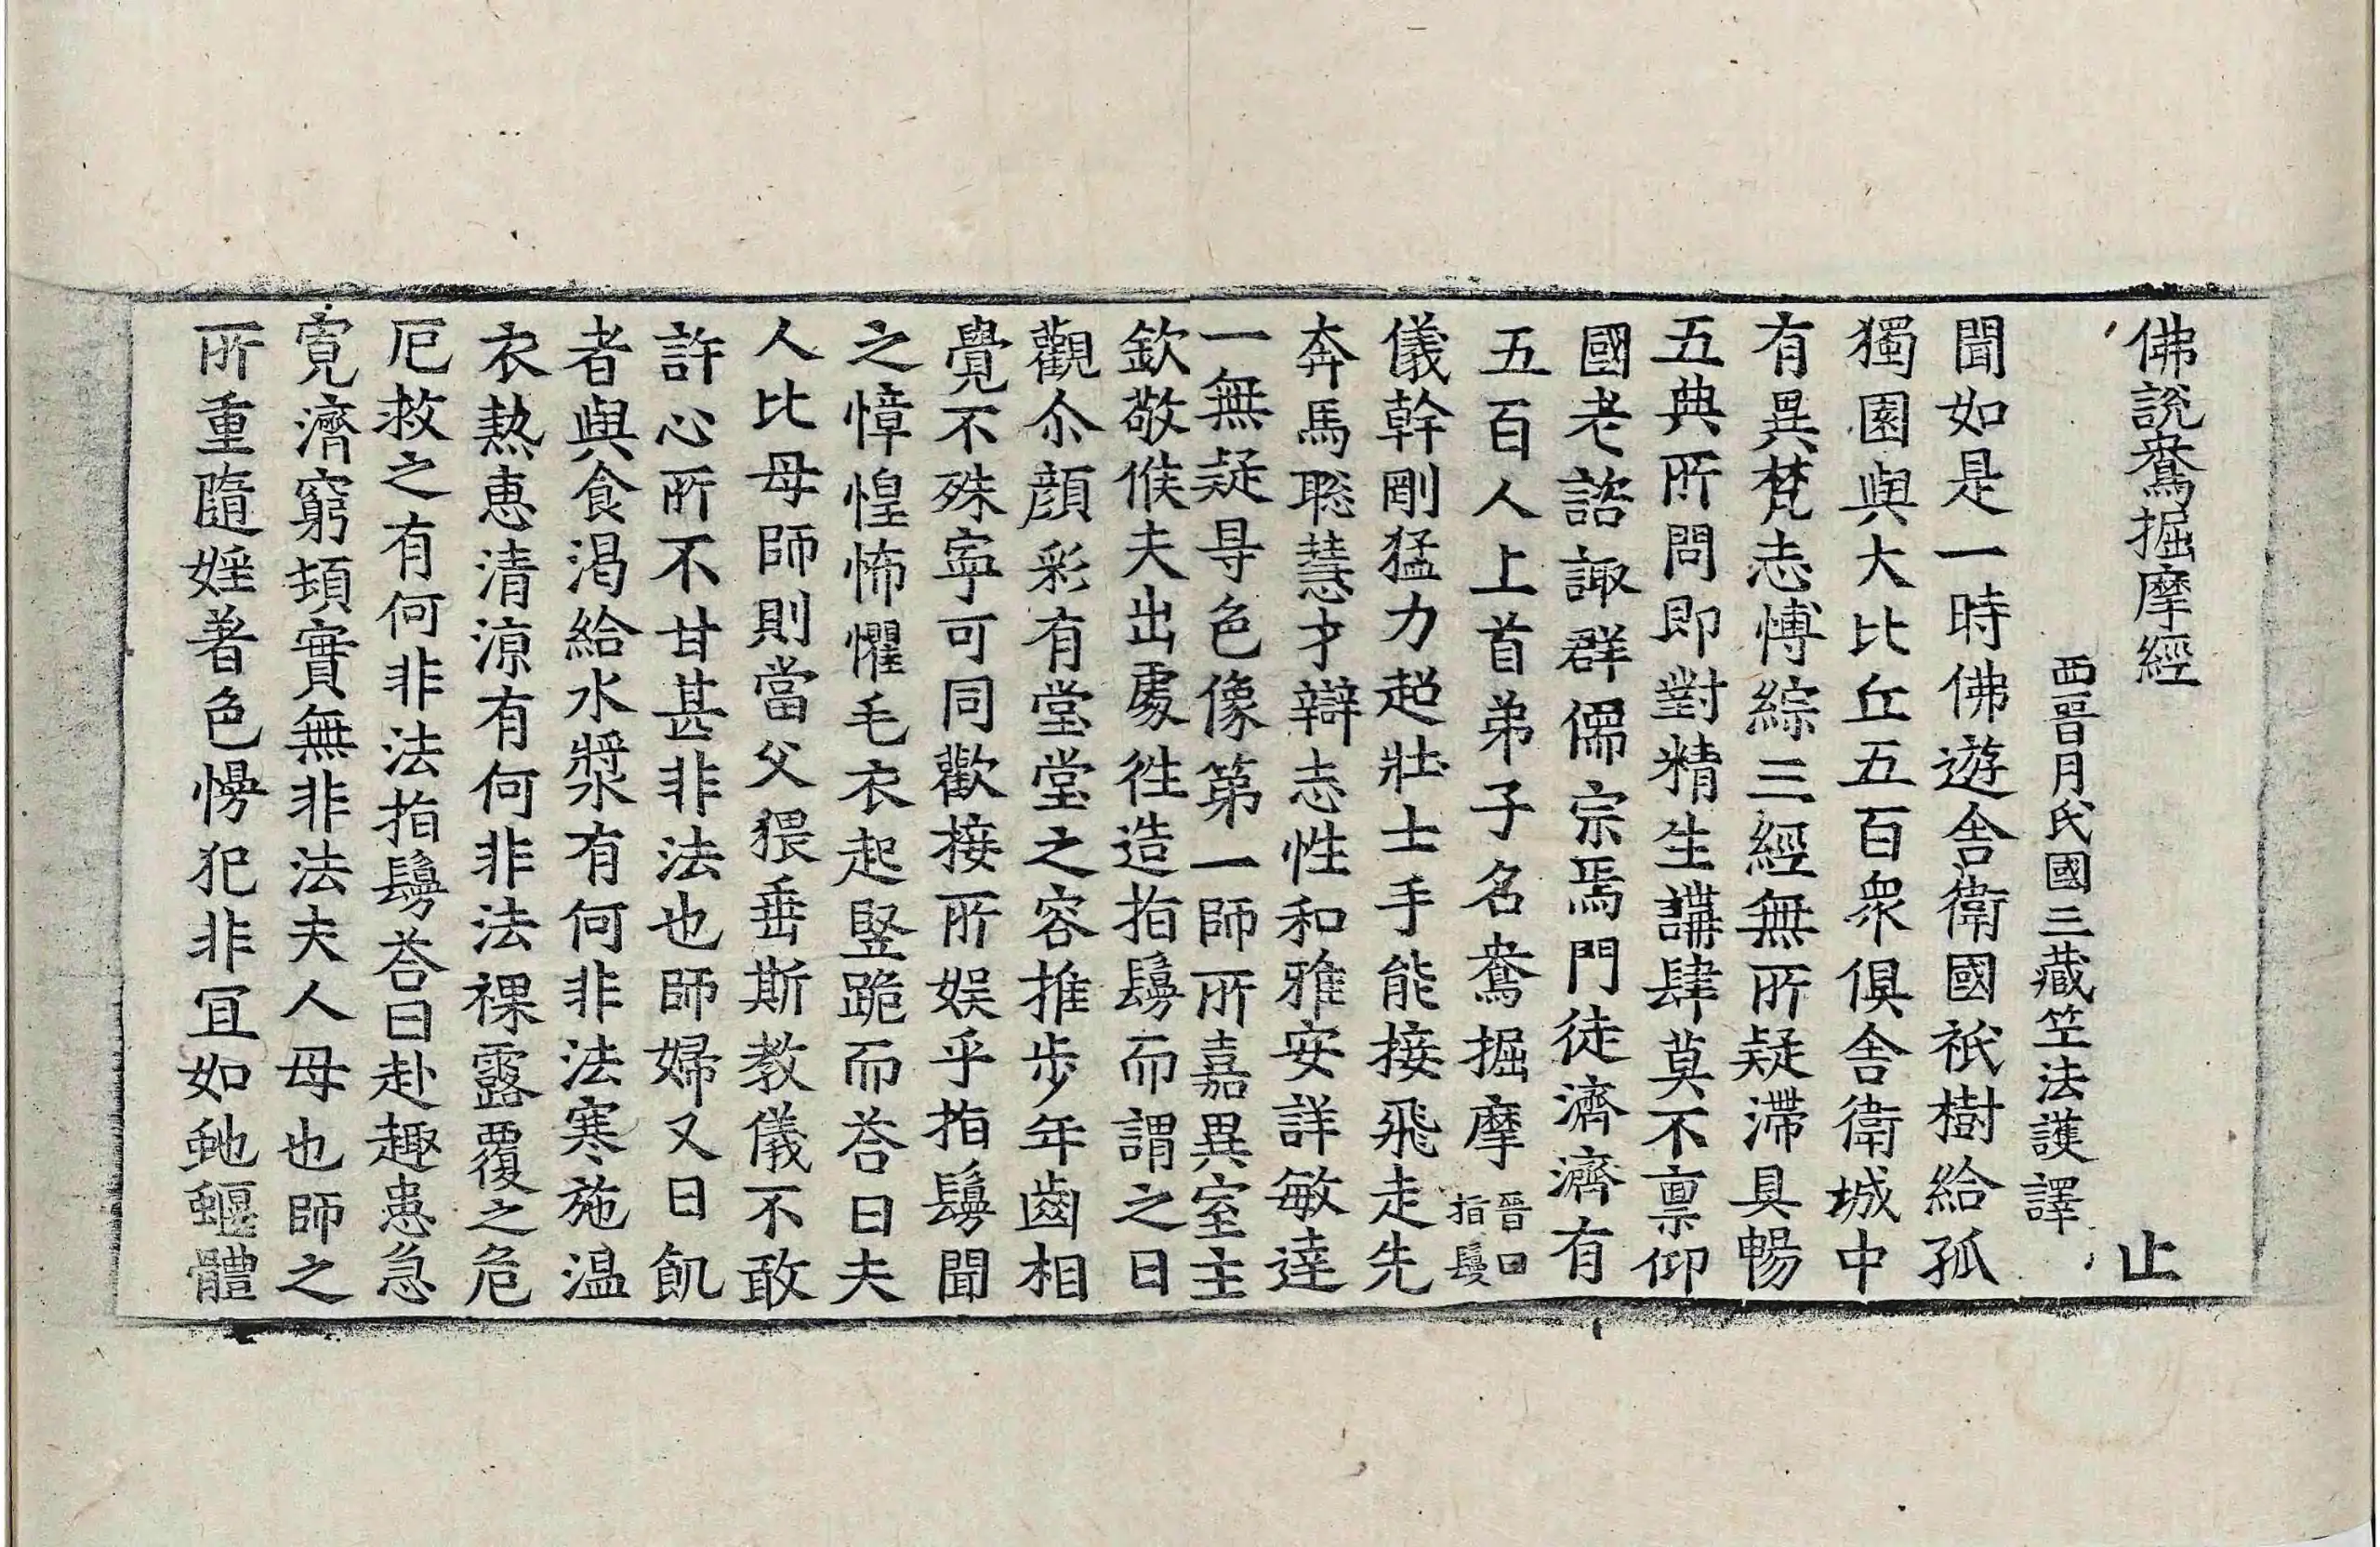 佛說鴦掘摩經　止
西晉月氏國三藏竺法護譯
聞如是一時佛遊舍衛國祇樹給孤
獨園與大比丘五百眾俱舍衛城中
有異梵志博綜三經無所疑滯具暢
五典所問即對精生講肆莫不稟仰
國老諮諏群儒宗焉門徒濟濟有
五百人上首弟子名鴦掘摩晉曰指鬘
儀幹剛猛力超壯士手能接飛走先
奔馬聡慧才辯志性和雅安詳敏達
一無疑㝵色像第一師所嘉異室主
欽敬候夫出處徃造指鬘而謂之曰
觀尒顏彩有堂堂之容推步年齒相
覺不殊寧可同歡接所娛乎指鬘聞
之慞惶怖懼毛衣起竪跪而荅曰夫
人比母師則當父猥垂斯教儀不敢
許心所不甘甚非法也師婦又曰飢
者與食渴給水漿有何非法寒施温
衣熱惠清涼有何非法裸露覆之危
厄救之有何非法指鬘荅曰赴趣患急
寬濟窮頓實無非法夫人母也師之
所重隨婬著色慢犯非冝如虵蝘體